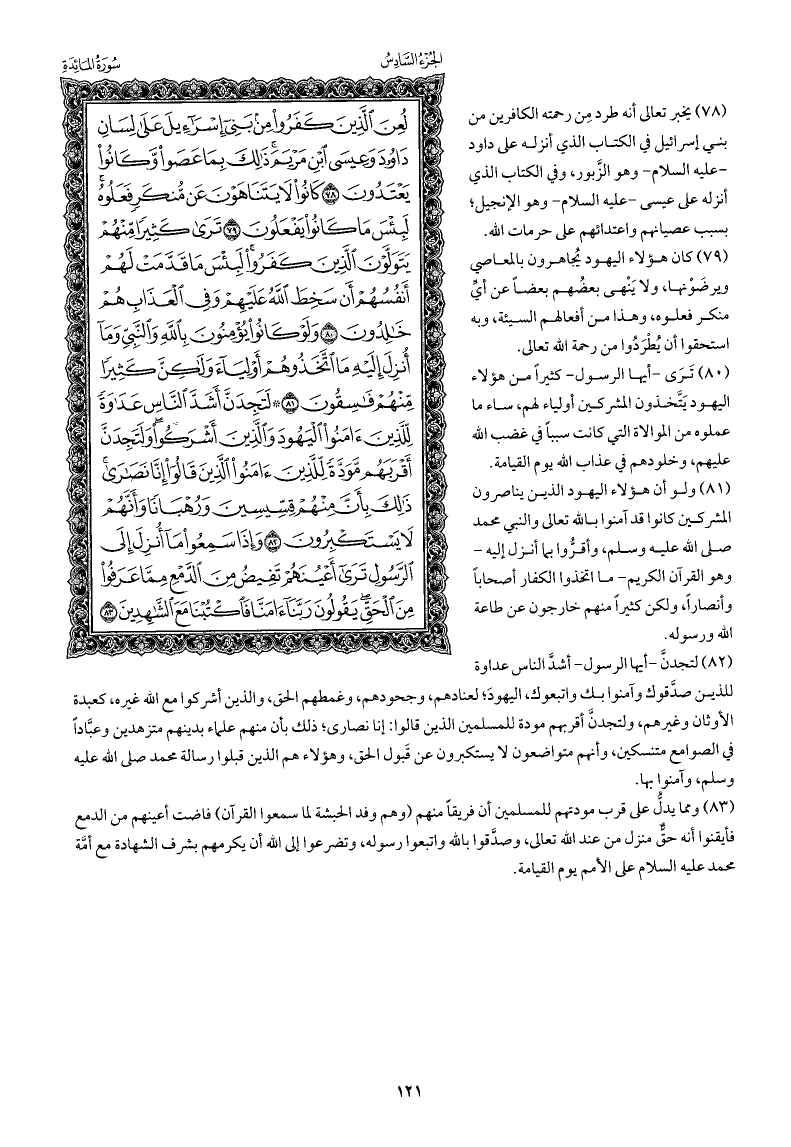 الجزء السادس
سورة المائدة
لُعِنَ ٱلَّذِينَ كَفَرُوا۟ مِنۢ بَنِىٓ إِسْرَٰٓءِيلَ عَلَىٰ لِسَانِ
دَاوُۥدَ وَعِيسَى ٱبْنِ مَرْيَمَ ۚ ذَٰلِكَ بِمَا عَصَوا۟ وَّكَانُوا۟
يَعْتَدُونَ ٧٨ كَانُوا۟ لَا يَتَنَاهَوْنَ عَن مُّنكَرٍ فَعَلُوهُ ۚ
لَبِئْسَ مَا كَانُوا۟ يَفْعَلُونَ ٧٩ تَرَىٰ كَثِيرًا مِّنْهُمْ
يَتَوَلَّوْنَ ٱلَّذِينَ كَفَرُوا۟ ۚ لَبِئْسَ مَا قَدَّمَتْ لَهُمْ
أَنفُسُهُمْ أَن سَخِطَ ٱللَّهُ عَلَيْهِمْ وَفِى ٱلْعَذَابِ هُمْ
خَٰلِدُونَ ٨٠ وَلَوْ كَانُوا۟ يُؤْمِنُونَ بِٱللَّهِ وَٱلنَّبِىِّ وَمَآ
أُنزِلَ إِلَيْهِ مَا ٱتَّخَذُوهُمْ أَوْلِيَآءَ وَلَٰكِنَّ كَثِيرًا
مِّنْهُمْ فَٰسِقُونَ ٨١ ۞ لَتَجِدَنَّ أَشَدَّ ٱلنَّاسِ عَدَٰوَةً
لِّلَّذِينَ ءَامَنُوا۟ ٱلْيَهُودَ وَٱلَّذِينَ أَشْرَكُوا۟ ۖ وَلَتَجِدَنَّ
أَقْرَبَهُم مَّوَدَّةً لِّلَّذِينَ ءَامَنُوا۟ ٱلَّذِينَ قَالُوٓا۟ إِنَّا نَصَٰرَىٰ ۚ
ذَٰلِكَ بِأَنَّ مِنْهُمْ قِسِّيسِينَ وَرُهْبَانًا وَأَنَّهُمْ
لَا يَسْتَكْبِرُونَ ٨٢ وَإِذَا سَمِعُوا۟ مَآ أُنزِلَ إِلَى
ٱلرَّسُولِ تَرَىٰٓ أَعْيُنَهُمْ تَفِيضُ مِنَ ٱلدَّمْعِ مِمَّا عَرَفُوا۟
مِنَ ٱلْحَقِّ ۖ يَقُولُونَ رَبَّنَآ ءَامَنَّا فَٱكْتُبْنَا مَعَ ٱلشَّٰهِدِينَ ٨٣
(٧٨) يخبر تعالى أنه طرد مِن رحمته الكافرين من
بني إسرائيل في الكتاب الذي أنزله على داود
-عليه السلام- وهو الزَّبور، وفي الكتاب الذي
أنزله على عيسى -عليه السلام- وهو الإنجيل؛
بسبب عصيانهم واعتدائهم على حرمات الله.
(٧٩) كان هؤلاء اليهود يُجاهرون بالمعاصي
ويرضَوْنها، ولا يَنْهى بعضُهم بعضاً عن أيِّ
منكر فعلوه، وهذا من أفعالهم السيئة، وبه
استحقوا أن يُطْرَدُوا من رحمة الله تعالى.
(٨٠) تَرَى -أيها الرسول- كثيراً من هؤلاء
اليهود يَتَّخذون المشركين أولياء لهم، ساء ما
عملوه من الموالاة التي كانت سبباً في غضب الله
عليهم، وخلودهم في عذاب الله يوم القيامة.
(٨١) ولو أن هؤلاء اليهود الذين يناصرون
المشركين كانوا قد آمنوا بالله تعالى والنبي محمد
صلى الله عليه وسلم، وأقرُّوا بما أنزل إليه -
وهو القرآن الكريم- ما اتخذوا الكفار أصحاباً
وأنصاراً، ولكن كثيراً منهم خارجون عن طاعة
الله ورسوله.
(٨٢) لتجدنَّ -أيها الرسول- أشدَّ الناس عداوة
للذين صدَّقوك وآمنوا بك واتبعوك، اليهودَ؛ لعنادهم، وجحودهم، وغمطهم الحق، والذين أشركوا مع الله غيره، كعبدة
الأوثان وغيرهم، ولتجدنَّ أقربهم مودة للمسلمين الذين قالوا: إنا نصارى؛ ذلك بأن منهم علماء بدينهم متزهدين وعبَّاداً
في الصوامع متنسكين، وأنهم متواضعون لا يستكبرون عن قَبول الحق، وهؤلاء هم الذين قبلوا رسالة محمد صلى الله عليه
وسلم، وآمنوا بها.
(٨٣) ومما يدلُّ على قرب مودتهم للمسلمين أن فريقاً منهم (وهم وفد الحبشة لما سمعوا القرآن) فاضت أعينهم من الدمع
فأيقنوا أنه حقٌّ منزل من عند الله تعالى، وصدَّقوا بالله واتبعوا رسوله، وتضرعوا إلى الله أن يكرمهم بشرف الشهادة مع أمَّة
محمد عليه السلام على الأمم يوم القيامة.
١٢١